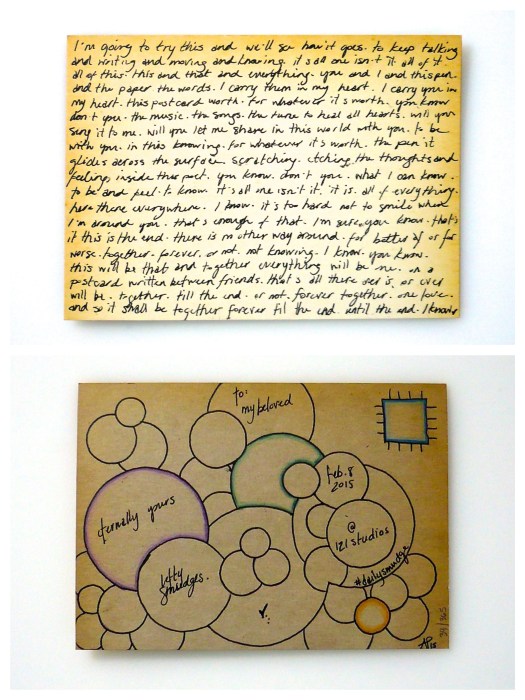 I'm going to try this and we'll see how it goes. to keep talking
and writing and moving and knowing. it's all one isn't it all of it.
all of this. this and that and everything. you and I and this pen.
and the paper the words. I carry them in my heart. I carry you in
my heart. this postcard worth. for whatever it's worth. you know
don't you. the music. the songs. the tune to heal all hearts. will you
sing it to me. will you let me share in this world with you. to be
with you. in this knowing. for whatever it's worth. the pen it
glides across the surface scratching. etching. the thoughts and
feelings inside this poet. you know. don't you. what I can know.
to be and feel. to know it's all one isn't it. it is. all of everything.
here there everywhere. I know. it's to hard not to smile when
I'm around you. that's enough of that. I'm sure you know. that's
it this is the end. there is no other way around. for better of or for
worse. together. forever. or not. not knowing. I know. you know.
this will be that and together everything will be me. on a
postcard written between friends. that's all there ever is. or ever
will be. together. till the end. or not. forever together. one love.
and so it shall be together forever til the end. until the end. I know
to:
my beloved
Feb. 8
2015
eternally yours
@
121 studios
lefty
smudges.
#dailysmudges
39/365